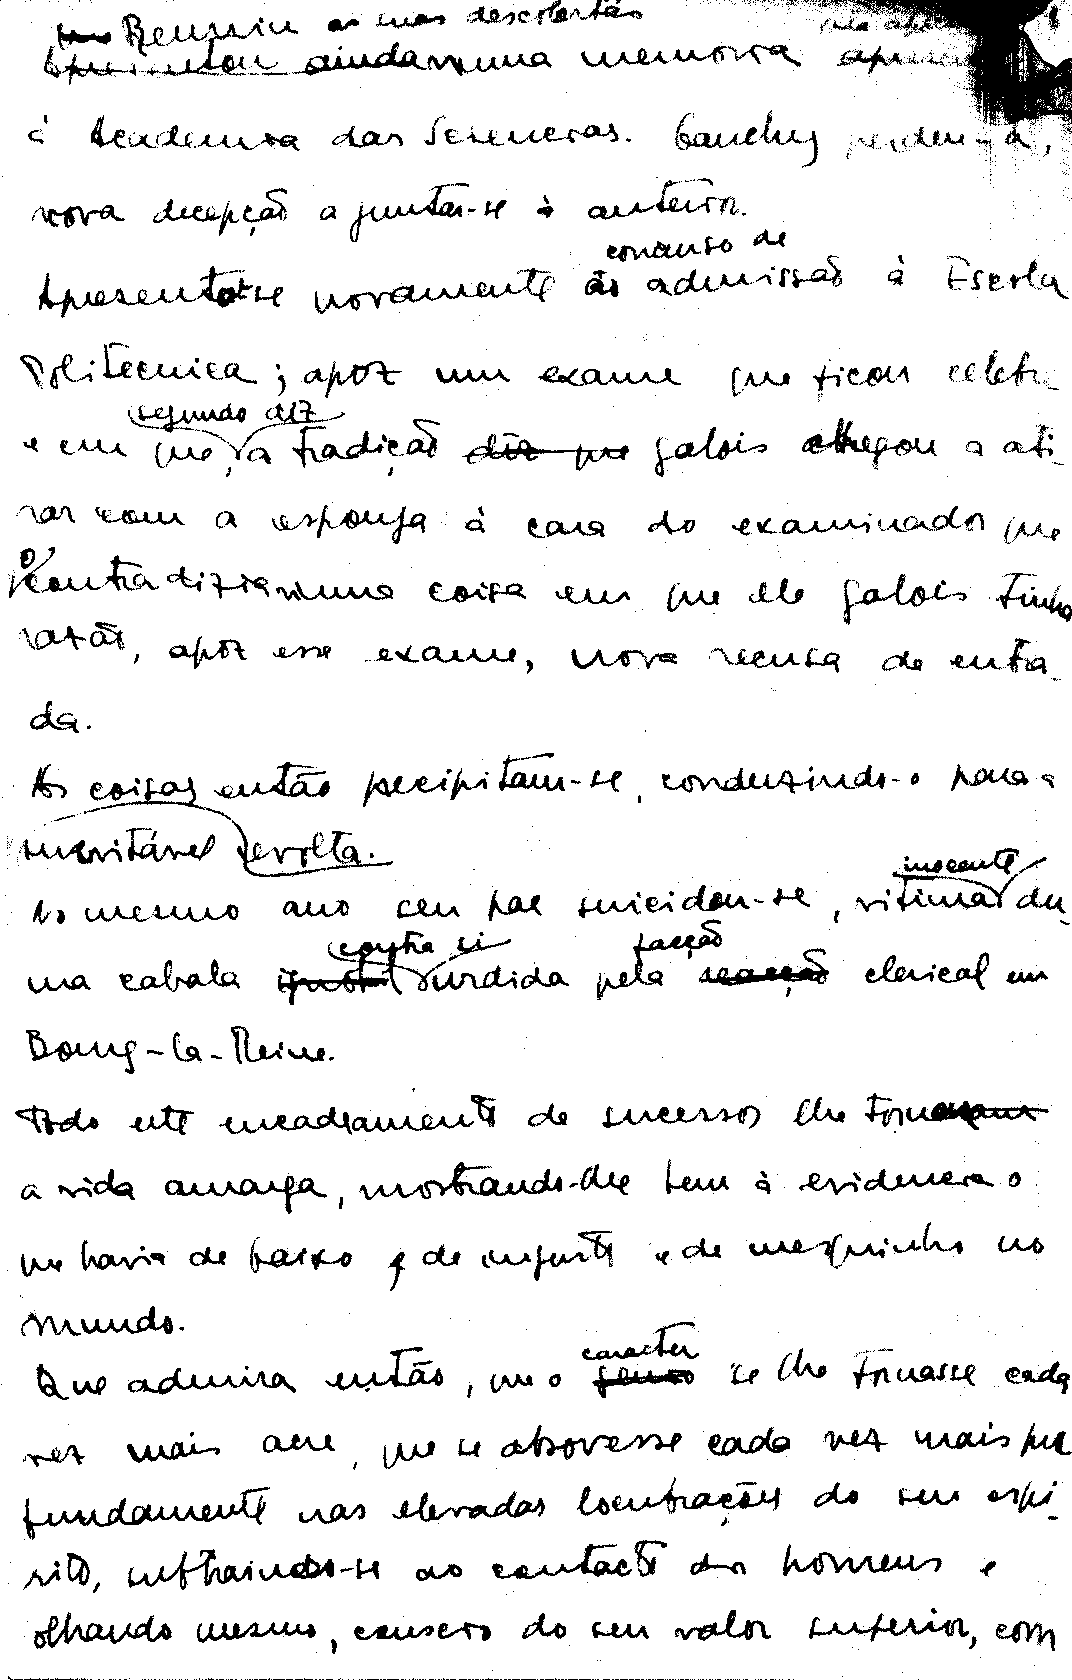 Reuniu as suas descobertas
Apresentou ainda numa memoria
à Academia das Sciencias. Cauchy perdeu-a,
nova decepção a juntar-se à anterior.
concurso de
Apresenta-se novamente ao admissão à Escola
Politecnica; apoz um exame que ficou celebre
segundo diz
e em que, a tradição diz que Galois chegou a ati-
rar com a esponja à cara do examinador que
o contradizia numa coisa em que ele Galois tinha
razão, apoz esse exame, nova recusa de entra-
da.
As coisas então precipitam-se, conduzindo-o para a
inevitável revolta.
inocente
No mesmo ano seu pae suicidou-se, vitima du-
contra si facção
ma cabala urdida pela reacção clerical em
Bourg-la-Reine.
Todo este encadeamento de sucessos lhe tornaram
a vida amarga, mostrando-lhe bem à evidencia o
que havia de baixo, de injusto e de mesquinho no
mundo.
caracter
Que admira então, que o genio se lhe tornasse cada
vez mais acre, que se absorvesse cada vez mais pro
fundamente nas elevadas locubrações do seu espi-
rito, subtraindo-se ao contacto dos homens e
olhando mesmo, conscio do seu valor superior, com